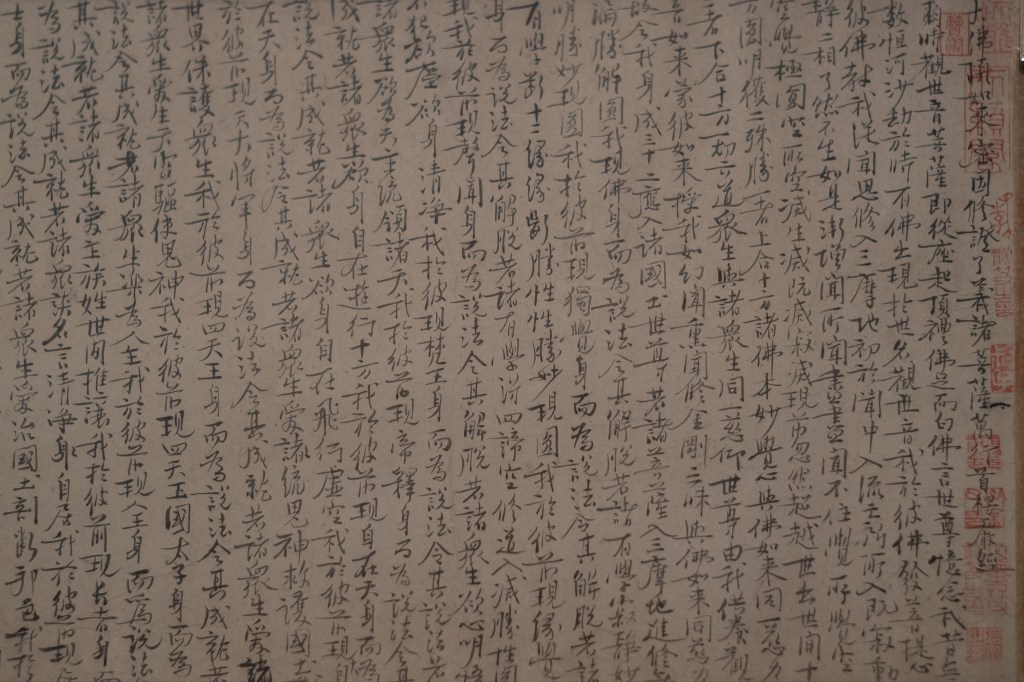 大佛頂如來密因修證了義諸菩薩萬行首楞嚴經
爾時觀世音菩薩即從座起頂禮佛足而白佛言世尊憶念我昔無
數恒河沙劫於時有佛出現於世名觀世音我於彼佛發菩提心
彼佛教我從聞思修入三摩地初於聞中入流亡所所入既寂動
靜二相了然不生如是漸增聞所聞盡盡聞不住覺所覺空
空覺極圓空所空滅生滅既滅寂滅現前忽然超越世出世間十
方圓明獲二殊勝一者上合十方諸佛本妙覺心與佛如來同一慈力
二者下合十方一切六道眾生與諸眾生同一悲仰世尊由我供養觀
音如來蒙彼如來授我如幻聞薰聞修金剛三昧與佛如來同慈力
故令我身成三十二應入諸國土世尊若諸菩薩入三摩地進修無
漏勝解圓我現佛身而為說法令其解脫若諸有學寂靜妙
明勝妙現圓我於彼前現獨覺身而為說法令其解脫若諸
有學斷十二緣緣斷勝性勝性妙現圓我於彼前現緣覺
身而為說法令其解脫若諸有學得四諦空修道入滅勝性圓
現我於彼前現聲聞身而為說法令其解脫若諸眾生欲心明悟
不犯欲塵欲身清淨我於彼現梵王身而為說法令其說法若
諸眾生欲為天主統領諸天我於彼前現帝釋身而為說法令其
成就若諸眾生欲身自在遊行十方我於彼前現自在天身而為
說法令其成就若諸眾生欲身自在飛行虛空我於彼前現
在天身而為說法令其成就若諸眾生愛諸統鬼神救護國土
於彼前現天大將軍身而為說法令其成就若諸眾生愛諸
世界保護眾生我於彼前現四天王身而為說法令其成就若
諸眾生愛生天宮驅使鬼神我於彼前現四天王國太子身而為
說法令其成就若諸眾生樂為人主我於彼前現人王身而為說法
其成就若諸眾生愛主族姓世間推讓我於彼前現長者身而
為說法令其成就若諸眾生談名言清淨身自居我於彼前現
士身而為說法令其成就若諸眾生愛治國土剖斷邦邑我於